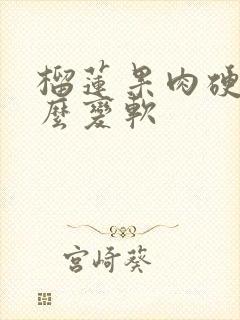 榴蓮果肉硬
麼變軟
宮崎葵